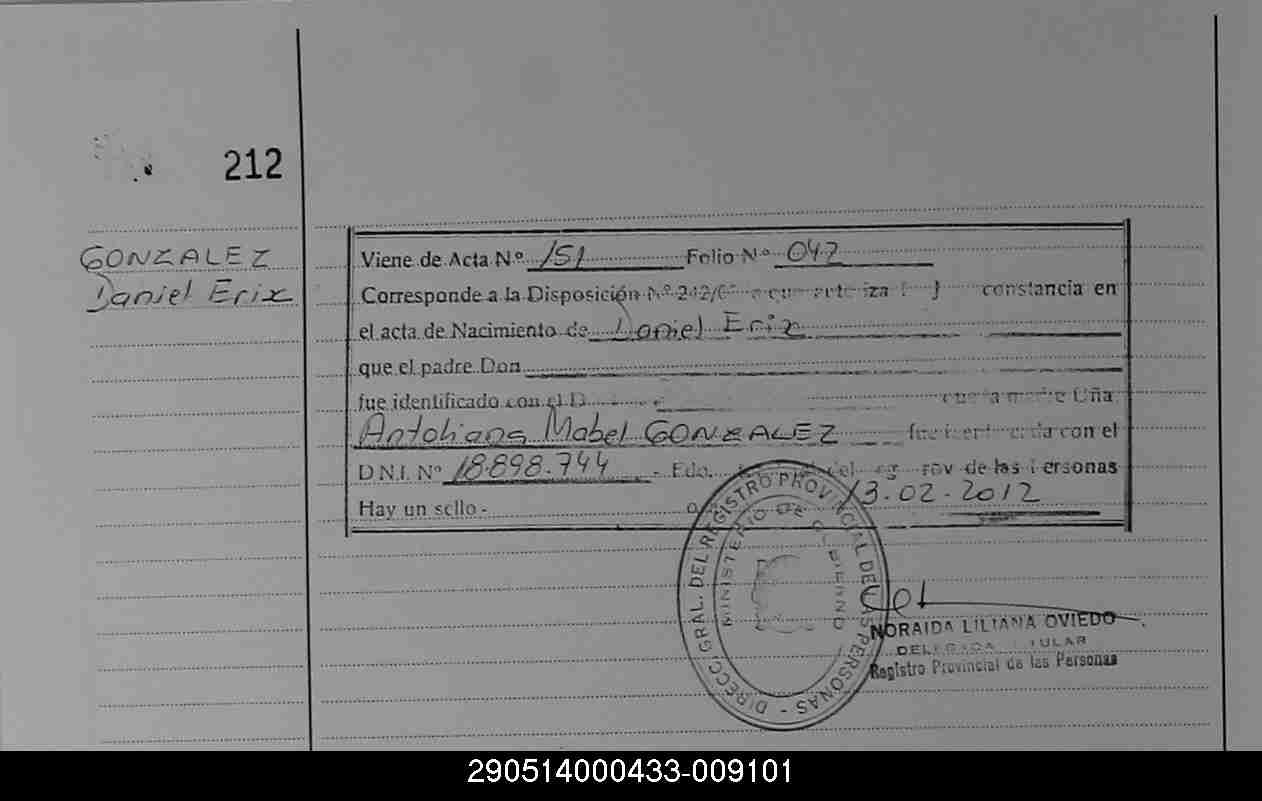 212
GONZALEZ
Daniel Erix
Viene de Acta Nº 151 Folio Nº 042
Corresponde a la Disposición Nº 242/ constancia en
el acta de Nacimiento de Daniel Erix
que el padre Don
fue identificado con el D
madre Dña.
Mabel GONZALEZ con el
D.N.I. Nº 18.898.744 - Fdo. de las Personas
Hay un sello - 13.02.2012
DIRECC. GRAL. DEL REGISTRO PROVINCIAL DE LAS PERSONAS -
MINISTERIO DE GOBIERNO
NORAIDA LILIANA OVIEDO
DELEGADA TITULAR
Registro Provincial de las Personas
290514000433-009101